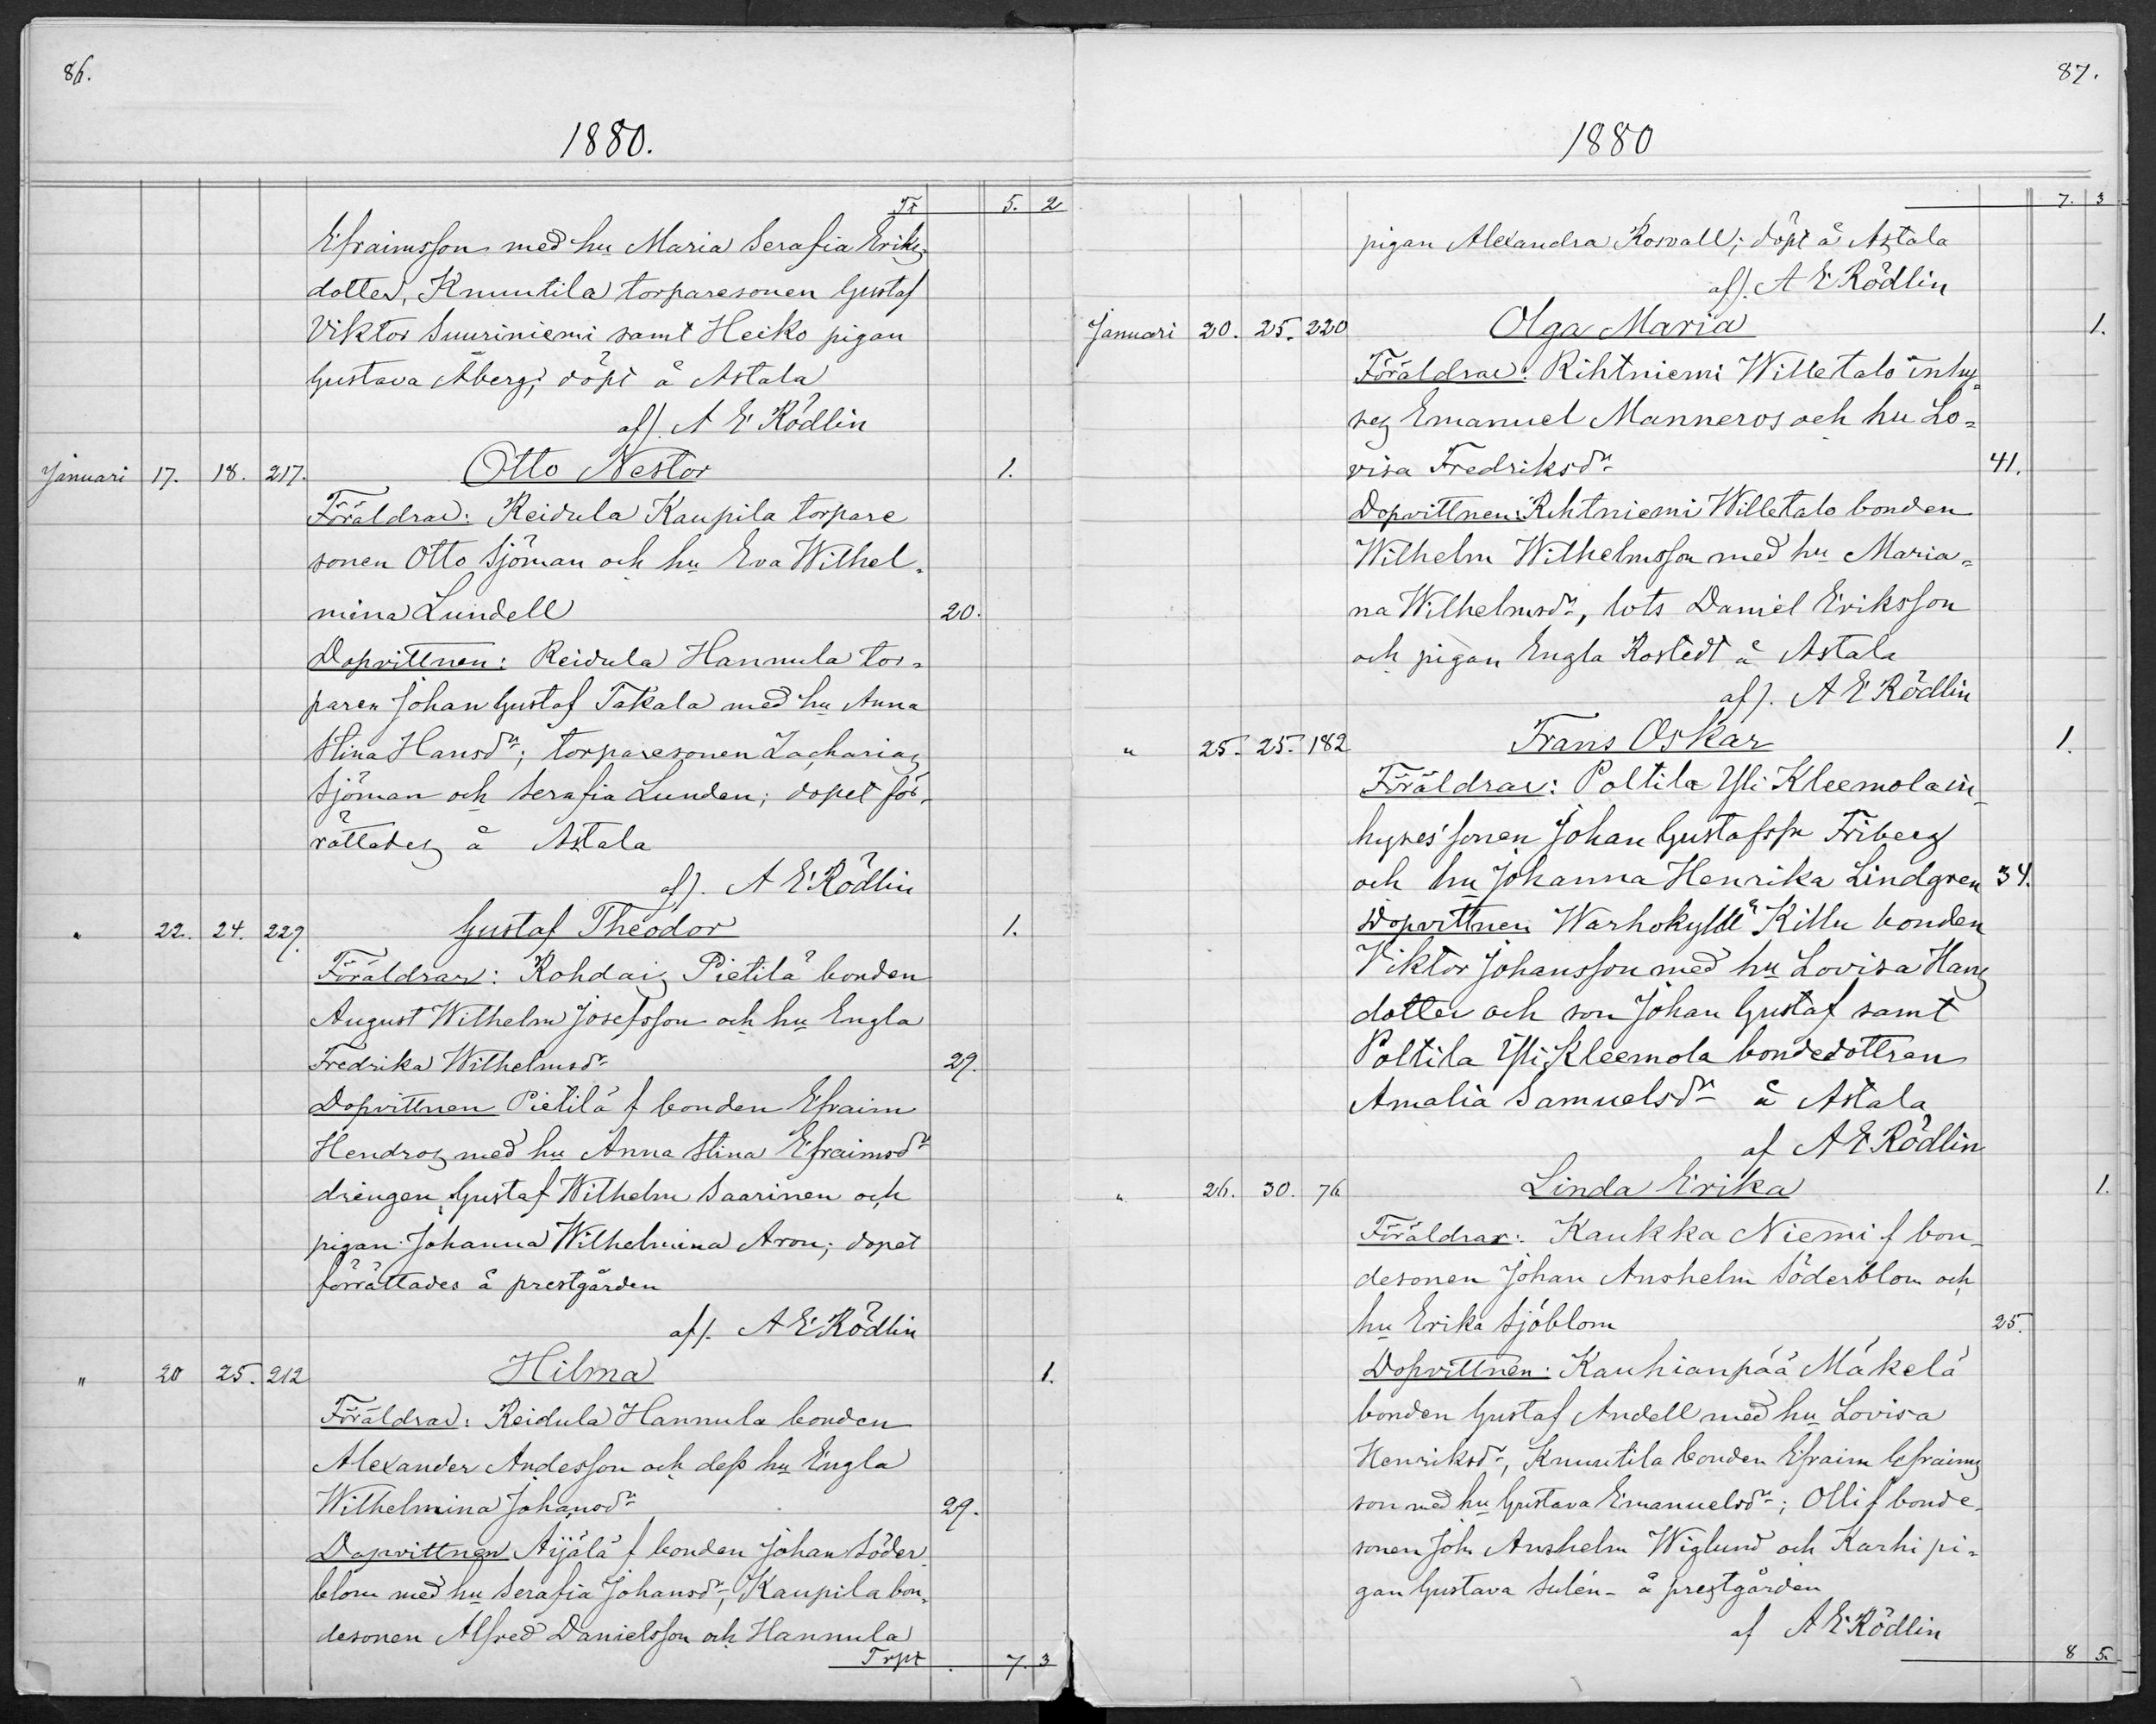 86.
1880.
Tr 5. 2
Efraimsson med hu Maria Serafia Eriks-
dotter, Knuutila torparesonen Gustaf
Viktor Suuriniemi samt Heiko pigan
Gustava Åberg; döpt å Astala
af). A E Rödlin
Januari 17. 18. 217. Otto Nestor 1.
Föräldrar: Reidula Kaupila torpare
sonen Otto Sjöman och hu Eva Wilhel-
mina Lundell 20.
Dopvittnen: Reidula Hannula tor-
paren Johan Gustaf Takala med hu Anna
Stina Hansdr; torparesonen Zacharias
Sjöman och Serafia Lunden; dopet för-
rättades å Astala
af). A E Rödlin
" 22. 24. 229. Gustaf Theodor 1.
Föräldrar: Kohdais Pietilä bonden
August Wilhelm Josefsson och hu Engla
Fredrika Wilhelmsdr 29.
Dopvittnen Pietilä f bonden Efraim
Hendros med hu Anna Stina Efraimsdr
drengen Gustaf Wilhelm Saarinen och
pigan Johanna Wilhelmina Aron; dopet
förrättades å prestgården
af). A E Rödlin
" 20 25. 212 Hilma 1.
Föräldrar: Reidula Hannula bonden
Alexander Andesson och dess hu Engla
Wilhelmina Johansdr 29.
Dopvittnen Äijälä f bonden Johan Söder
blom med hu Serafia Johansdr; Kaupila bon-
desonen Alfred Danielsson och Hannula
Trpt 7. 3
87.
1880
7. 3
pigan Alexandra Rosvall; döpt å Astala
af). A E Rödlin
Januari 20. 25. 220 Olga Maria 1.
Föräldrar: Rihtniemi Willetalo inhy-
ses Emanuel Manneros och hu Lo-
visa Fredriksdr 41.
Dopvittnen: Rihtniemi Willetalo bonden
Wilhelm Wilhelmsson med hu Maria-
na Wilhelmsdr, lots Daniel Eriksson
och pigan Engla Rostedt å Astala
af). A E Rödlin
" 25. 25. 182 Frans Oskar 1.
Föräldrar: Poltila Yli Kleemola in-
hyses sonen Johan Gustafsson Friberg
och hu Johanna Henrika Lindgren 34.
Dopvittnen Warhokylä Killu bonden
Viktor Johansson med hu Lovisa Hans
dotter och son Johan Gustaf samt
Poltila Yli Kleemola bondedottren
Amalia Samuelsdr å Astala
af A E Rödlin
" 26. 30. 76 Linda Erika 1.
Föräldrar: Kaukka Niemi f bon-
desonen Johan Anshelm Söderblom och
hu Erika Sjöblom 25.
Dopvittnen: Kauhianpää Mäkelä
bonden Gustaf Andell med hu Lovisa
Henriksdr, Knuutila bonden Efraim Efraims
son med hu Gustava Emanuelsdr; Olli f bonde-
sonen Joh Anshelm Wiglund och Karhi pi-
gan Gustava Sulén - å prestgården
af A E Rödlin
8 5.